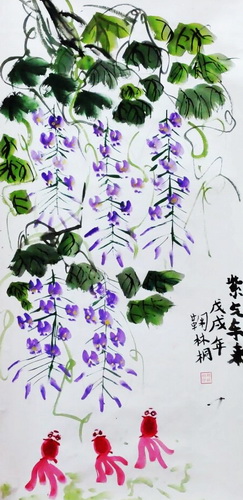 紫气东来
戊戌年
鞠林桐